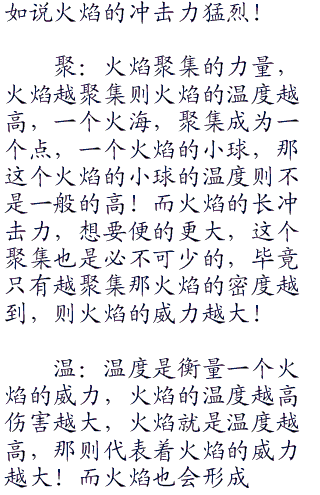 如说火焰的冲击力猛烈！
聚：火焰聚集的力量，
火焰越聚集则火焰的温度越
高，一个火海，聚集成为一
个点，一个火焰的小球，那
这个火焰的小球的温度则不
是一般的高！而火焰的长冲
击力，想要便的更大，这个
聚集也是必不可少的，毕竟
只有越聚集那火焰的密度越
到，则火焰的威力越大！
温：温度是衡量一个火
焰的威力，火焰的温度越高
伤害越大，火焰就是温度越
高，那则代表着火焰的威力
越大！而火焰也会形成